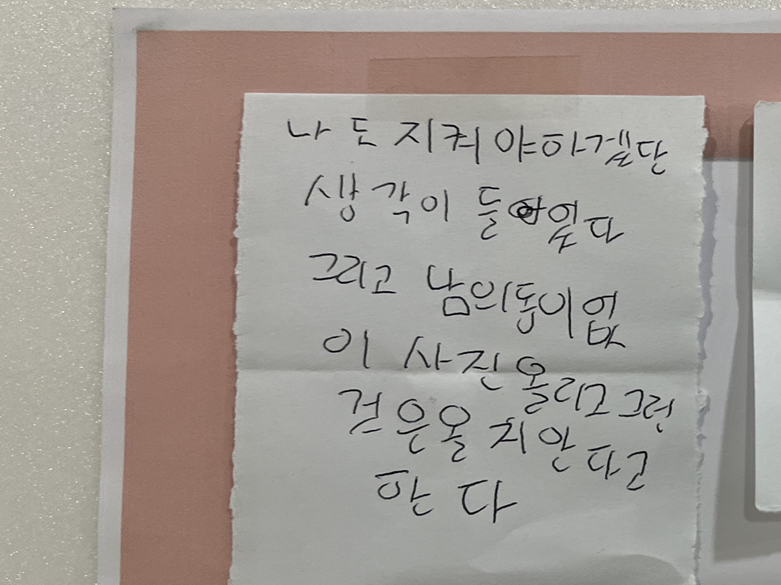 나도 지켜야하겠단
생각이 들었다
그리고 남의동이없
이 사진 올리고 그런
건은올치안다고
한다